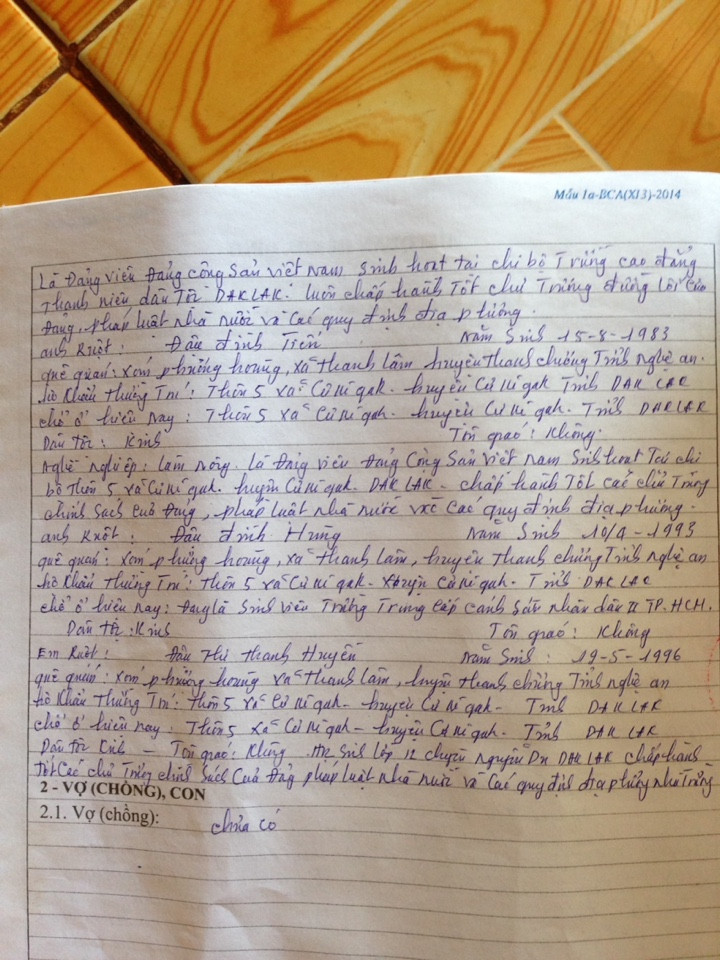 Mẫu 1a-BCA(X13)-2014
Là Đảng viên Đảng cộng sản việt nam sinh hoạt tại chi bộ Trường cao đẳng
Thanh niên dân Tộc DAK LAK. luôn chấp hành Tốt chủ Trương đường lối của
Đảng, pháp luật nhà nước và các quy định địa phương.
anh Ruột: Đậu đình Tiến năm sinh 15-8-1983
quê quán: xóm phượng hoàng, xã thanh lâm, huyện thanh chương Tỉnh nghệ an.
hộ khẩu thường Trú: Thôn 5 xã Cư Ni gak. huyện Cư Ni gak Tỉnh DAK LAK
chổ ở hiện nay: Thôn 5 xã Cư Ni gak. huyện Cư Ni gak. Tỉnh DAKLAK
Dân tộc: Kinh Tôn giáo: Không.
Nghề nghiệp: làm nông. là Đảng viên Đảng Cộng Sản việt nam Sinh hoạt Tại chi
bộ thôn 5 xã Cư Ni gak. huyện Cư Ni gak. DAK LAK - chấp hành Tốt các chủ Trương
chính sách của Đảng, pháp luật nhà nước và các quy định địa phương.
anh Ruột: Đậu đình Hùng năm Sinh 10/4-1993
quê quán: xóm phượng hoàng, xã thanh lâm, huyện thanh chương Tỉnh nghệ an
hộ khẩu thường Trú: thôn 5 xã Cư Ni gak. huyện Cư Ni gak. Tỉnh DAC LAC
chổ ở hiện nay: đang là Sinh viên Trường Trung cấp cảnh sát nhân dân II TP.HCM.
Dân tộc: Kinh Tôn giáo: Không
Em Ruột: Đậu Thị Thanh Huyền Năm Sinh: 19-5-1996
quê quán: xóm phượng hoàng xã thanh lâm, huyện thanh chương Tỉnh nghệ an
hộ khẩu Thường Trú: thôn 5 xã Cư Ni gak- huyện Cư Ni gak- Tỉnh DAK LAK
chổ ở hiện nay: Thôn 5 xã Cư Ni gak - huyện Cư Ni gak. Tỉnh DAK LAK
Dân tộc Kinh - Tôn giáo: Không. Sinh lớp 12 chuyên nguyễn Du DAK LAK chấp hành
tốt các chủ Trương chính Sách Của Đảng pháp luật nhà nước và các quy định địa phương nhà Trường
2 - VỢ (CHỒNG), CON
2.1. Vợ (chồng): chưa có